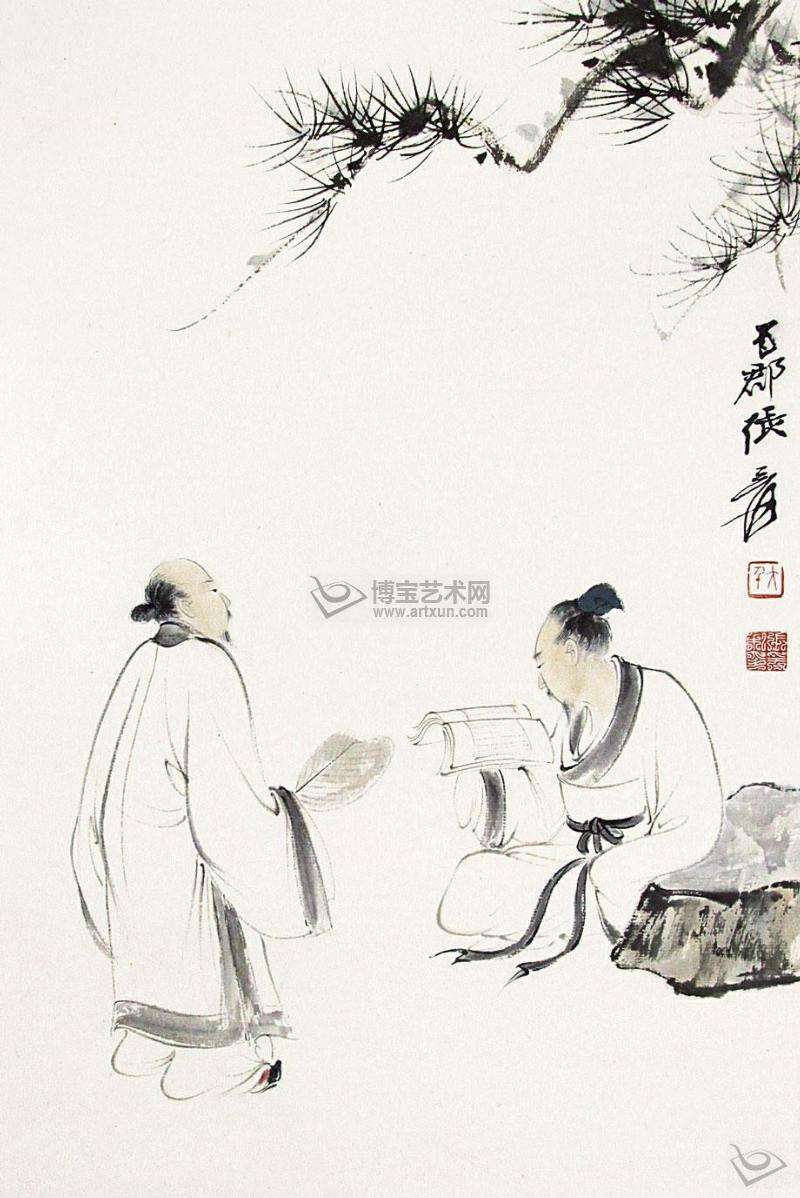 蜀郡張爰
大千
博宝艺术网
www.artxun.com